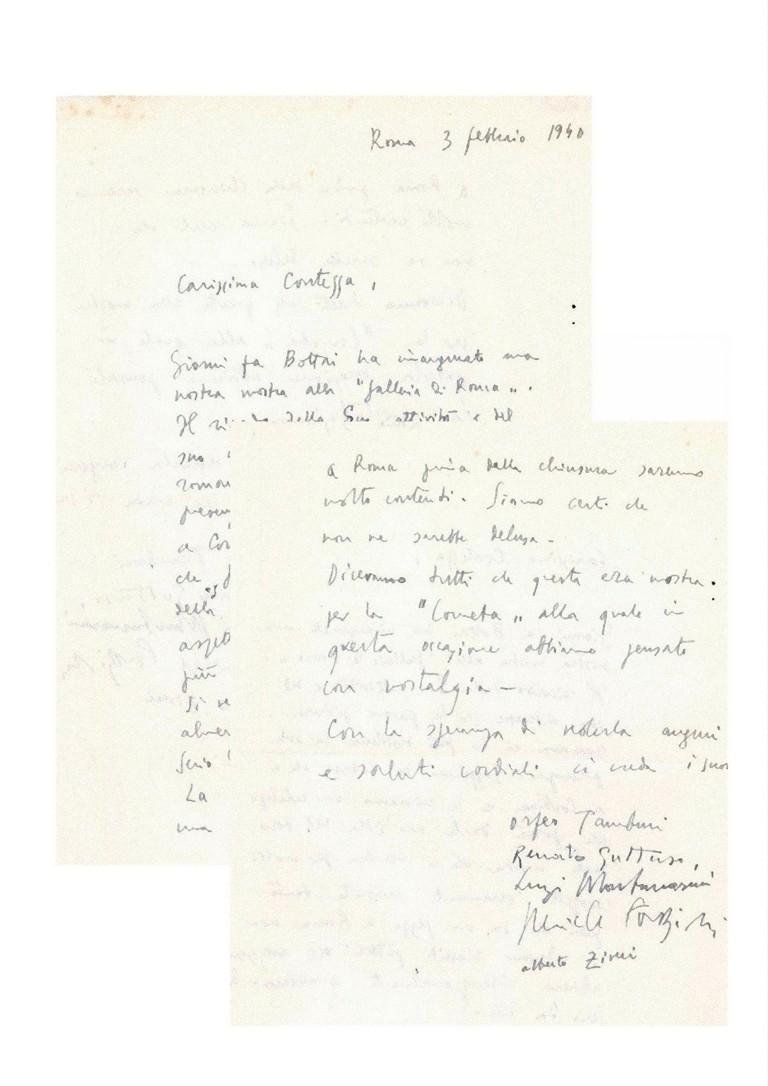 Roma 3 febbraio 1940
Carissima Contessa,
Giorni fa Bottai ha inaugurato una
nostra mostra alla "Galleria di Roma".
Il della Sua attività e del
suo
presen
a Cor
che
della
aspet
più
Si ve
almen
Serio
La
una
a Roma prima della chiusura saremo
molto contenti. Siamo certi che
non ne sarebbe delusa -
Dicevamo tutti che questa era mostra
per la "Cometa" alla quale in
questa occasione abbiamo pensato
con nostalgia -
Con la speranza di vederla auguri
e saluti cordiali ci creda i suoi
Orfeo Tamburi
Renato Guttuso,
Luigi Montanarini
Pericle Fazzini
Alberto Ziveri